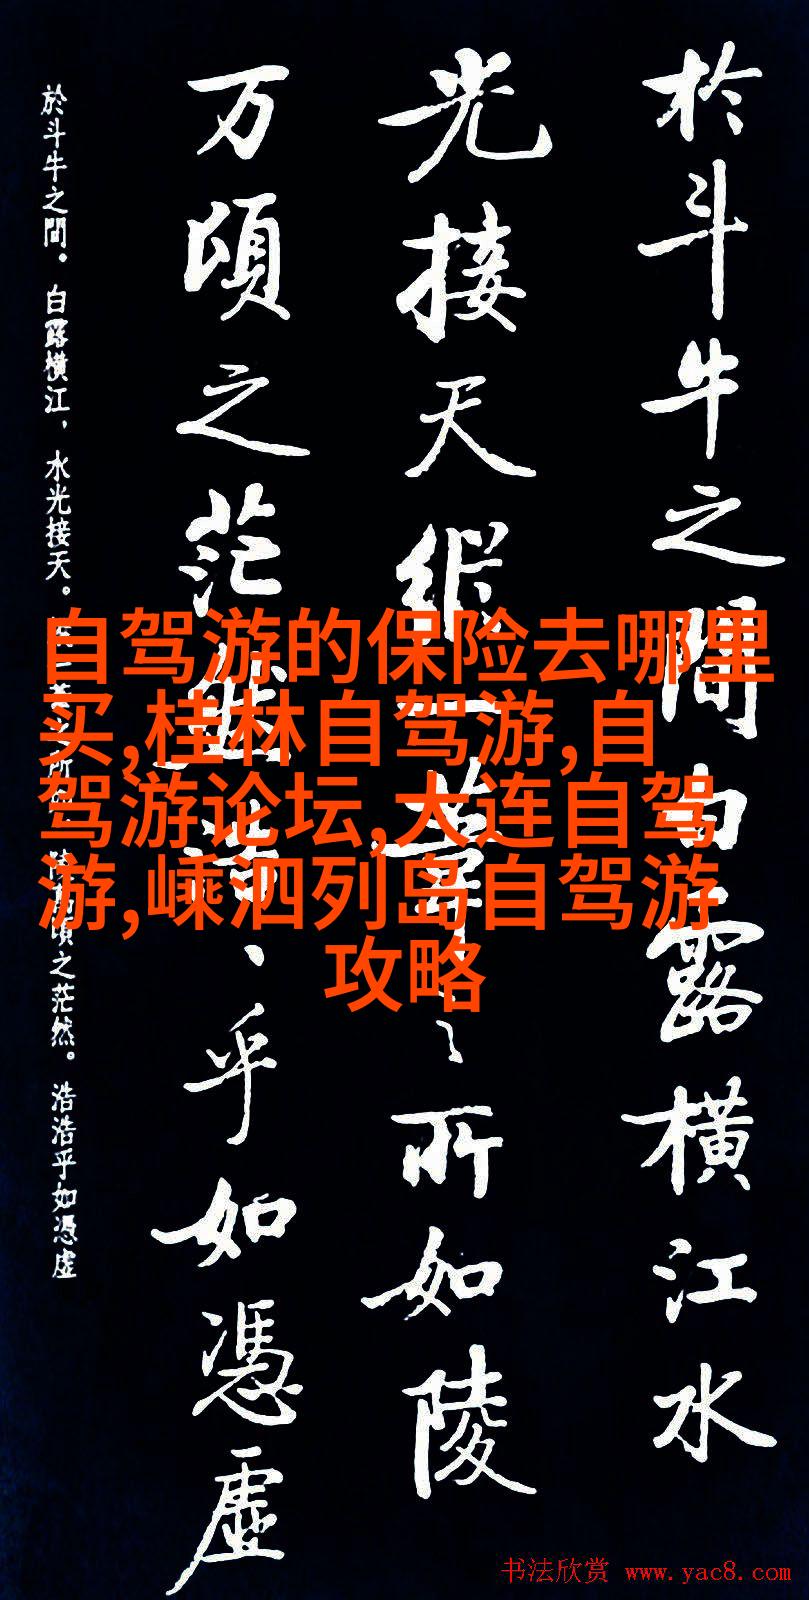 於斗牛之間白露橫江水
光接天縱一葦之所如陵
万頃之茫然浩浩乎如憑虛
於斗牛之間。白露橫江，水光接天。縱一葦之所如，陵萬頃之茫然。浩浩乎如憑虛
自驾游的保险去哪里
买,桂林自驾游,自
驾游论坛,大连自驾
游,嵊泗列岛自驾游
攻略
书法欣赏 www.yac8.com